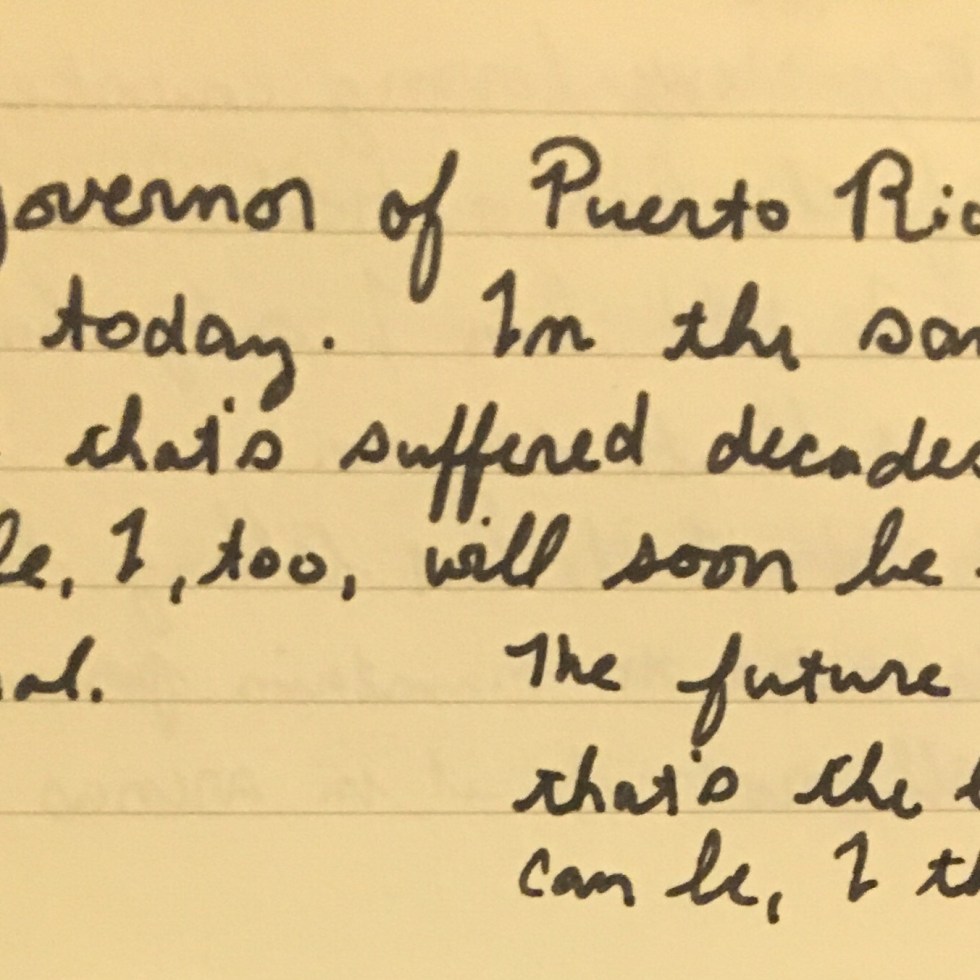 governor of Puerto Ric
today. In the sam
that's suffered decades
le, I, too, will soon be
al. The future
that's the
can be, I th